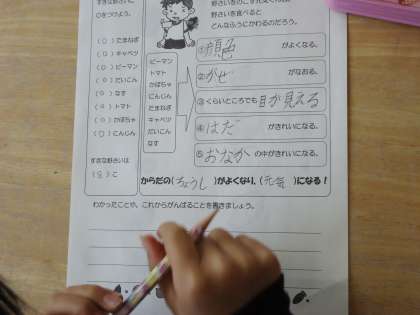 すきな野さいに
○をつけよう。
(○)たまねぎ
(○)キャベツ
(○)ピーマン
(○)だいこん
(○)なす
(○)トマト
(○)かぼちゃ
(○)にんじん
すきな野さいは
(8)こ
ピーマン
トマト
かぼちゃ
にんじん
たまねぎ
キャベツ
だいこん
なす
野さいを食べると
どんなふうにかわるのだろう。
①顔色がよくなる。
②かぜがなおる。
③くらいところでも目が見える
④はだがきれいになる。
⑤おなかの中がきれいになる。
からだの(ちょうし)がよくなり、(元気)になる！
わかったことや、これからがんばることを書きましょう。